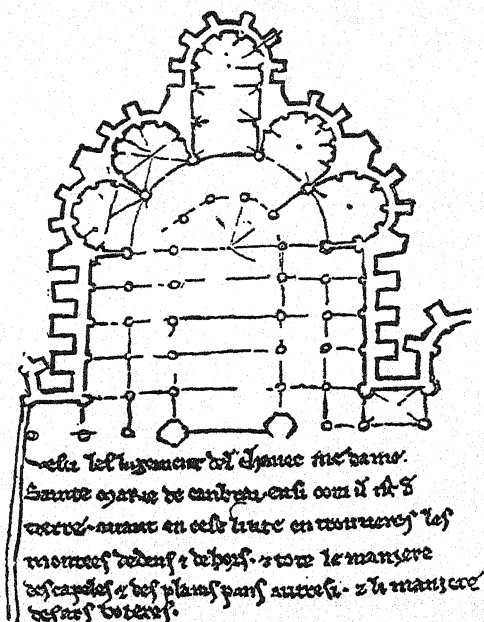 esci lesligement del chavec me dame.
Sainte marie de canbrai. ensi com il ist d
tierre. avant en cest livre en trouveres les
montees dedens & dehors. & tote le maniere
des capeles & des plains pans autresi. & li maniere
des ars boteres.